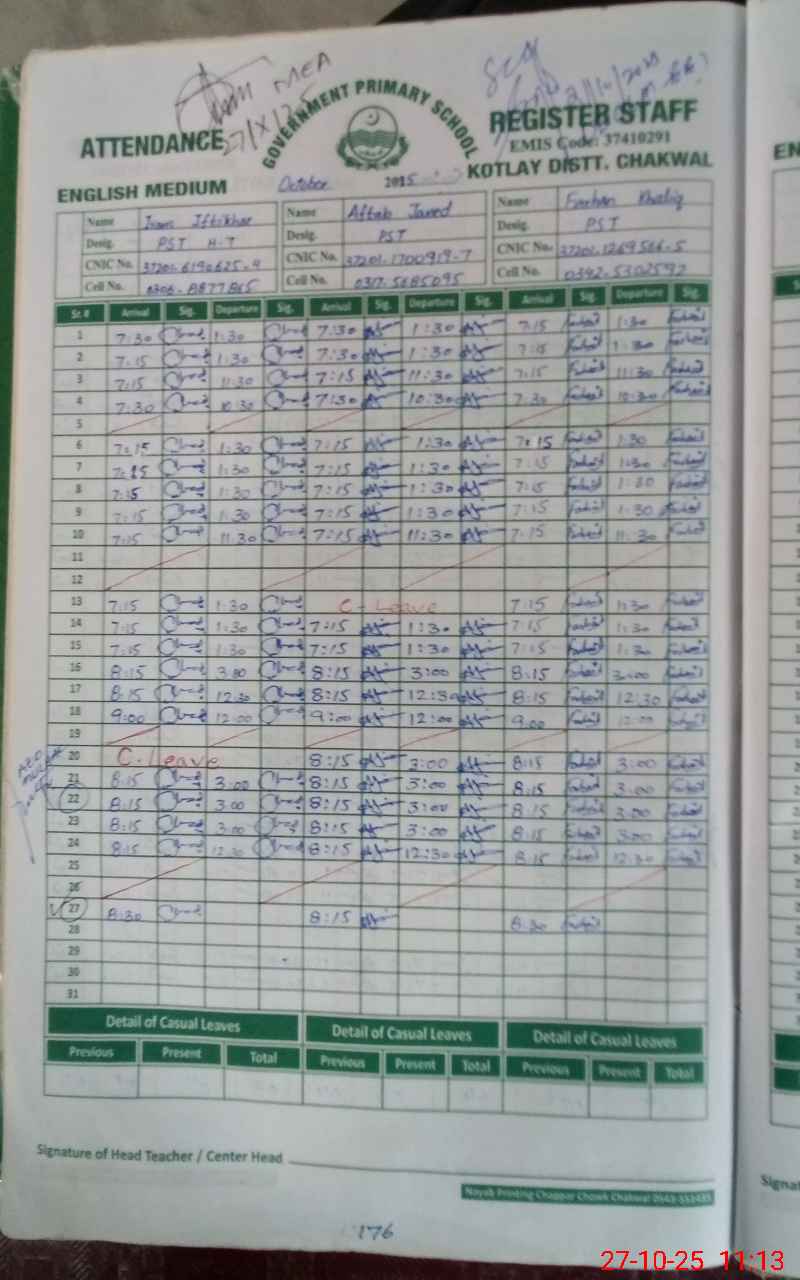 MEA
27/X/25
GOVERNMENT PRIMARY SCHOOL
ATTENDANCE
REGISTER STAFF
EMIS Code: 37410291
KOTLAY DISTT. CHAKWAL
ENGLISH MEDIUM October 2015
Name Name Aftab Javed Name Farhan Khaliq
Desig. PST H-T Desig. PST Desig. PST
CNIC No. 37201-6190625-9 CNIC No. 37201-1700919-7 CNIC No. 37201-1269566-5
Cell No. 0306-8877865 Cell No. 0317-5685095 Cell No. 0342-5302592
Sr.# Arrival Sig. Departure Sig. Arrival Sig. Departure Sig. Arrival Sig. Departure Sig.
1 7:30 1:30 7:30 1:30 7:15 1:30
2 7:15 1:30 7:30 1:30 7:15 1:30
3 7:15 11:30 7:15 11:30 7:15 11:30
4 7:30 10:30 7:30 10:30 7:30 10:30
5
6 7:15 1:30 7:15 1:30 7:15 1:30
7 7:15 1:30 7:15 1:30 7:15 1:30
8 7:15 1:30 7:15 1:30 7:15 1:30
9 7:15 1:30 7:15 1:30 7:15 1:30
10 7:15 11:30 7:15 11:30 7:15 11:30
11
12
13 7:15 1:30 C-Leave 7:15 1:30
14 7:15 1:30 7:15 1:30 7:15 1:30
15 7:15 1:30 7:15 1:30 7:15 1:30
16 8:15 3:00 8:15 3:00 8:15 3:00
17 8:15 12:30 8:15 12:30 8:15 12:30
18 9:00 12:00 9:00 12:00 9:00 12:00
19
20 C-Leave 8:15 3:00 8:15 3:00
21 8:15 3:00 8:15 3:00 8:15 3:00
22 8:15 3:00 8:15 3:00 8:15 3:00
23 8:15 3:00 8:15 3:00 8:15 3:00
24 8:15 12:30 8:15 12:30 8:15 12:30
25
26
27 8:30 8:15 8:30
28
29
30
31
Detail of Casual Leaves Detail of Casual Leaves Detail of Casual Leaves
Previous Present Total Previous Present Total Previous Present Total
Signature of Head Teacher / Center Head
Nayab Printing Chappar Chowk Chakwal
176
27-10-25 11:13